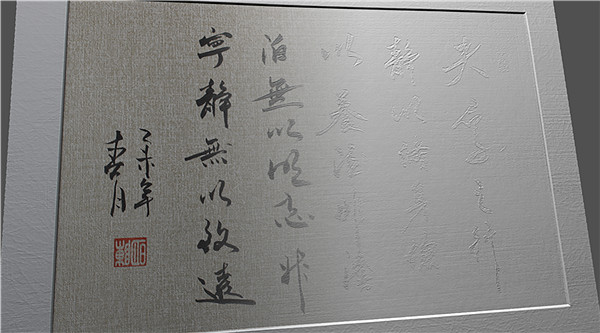 夫君子之行
靜以修身儉
以養德非澹
泊無以明志非
寧靜無以致遠
乙未年
春月